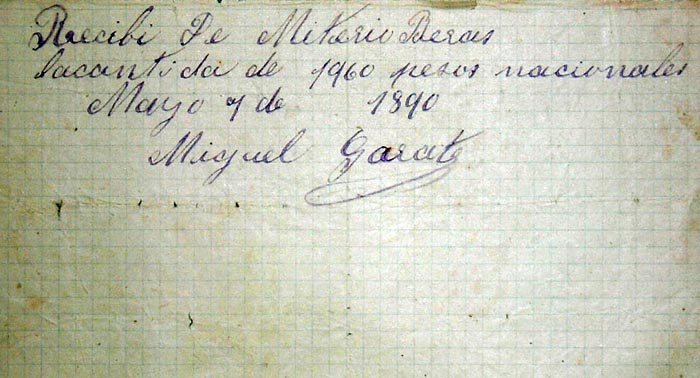 Recibi De Mikerio Beras
lacantida de 1960 pesos nacionales
Mayo 7 de 1890
Miguel Garate